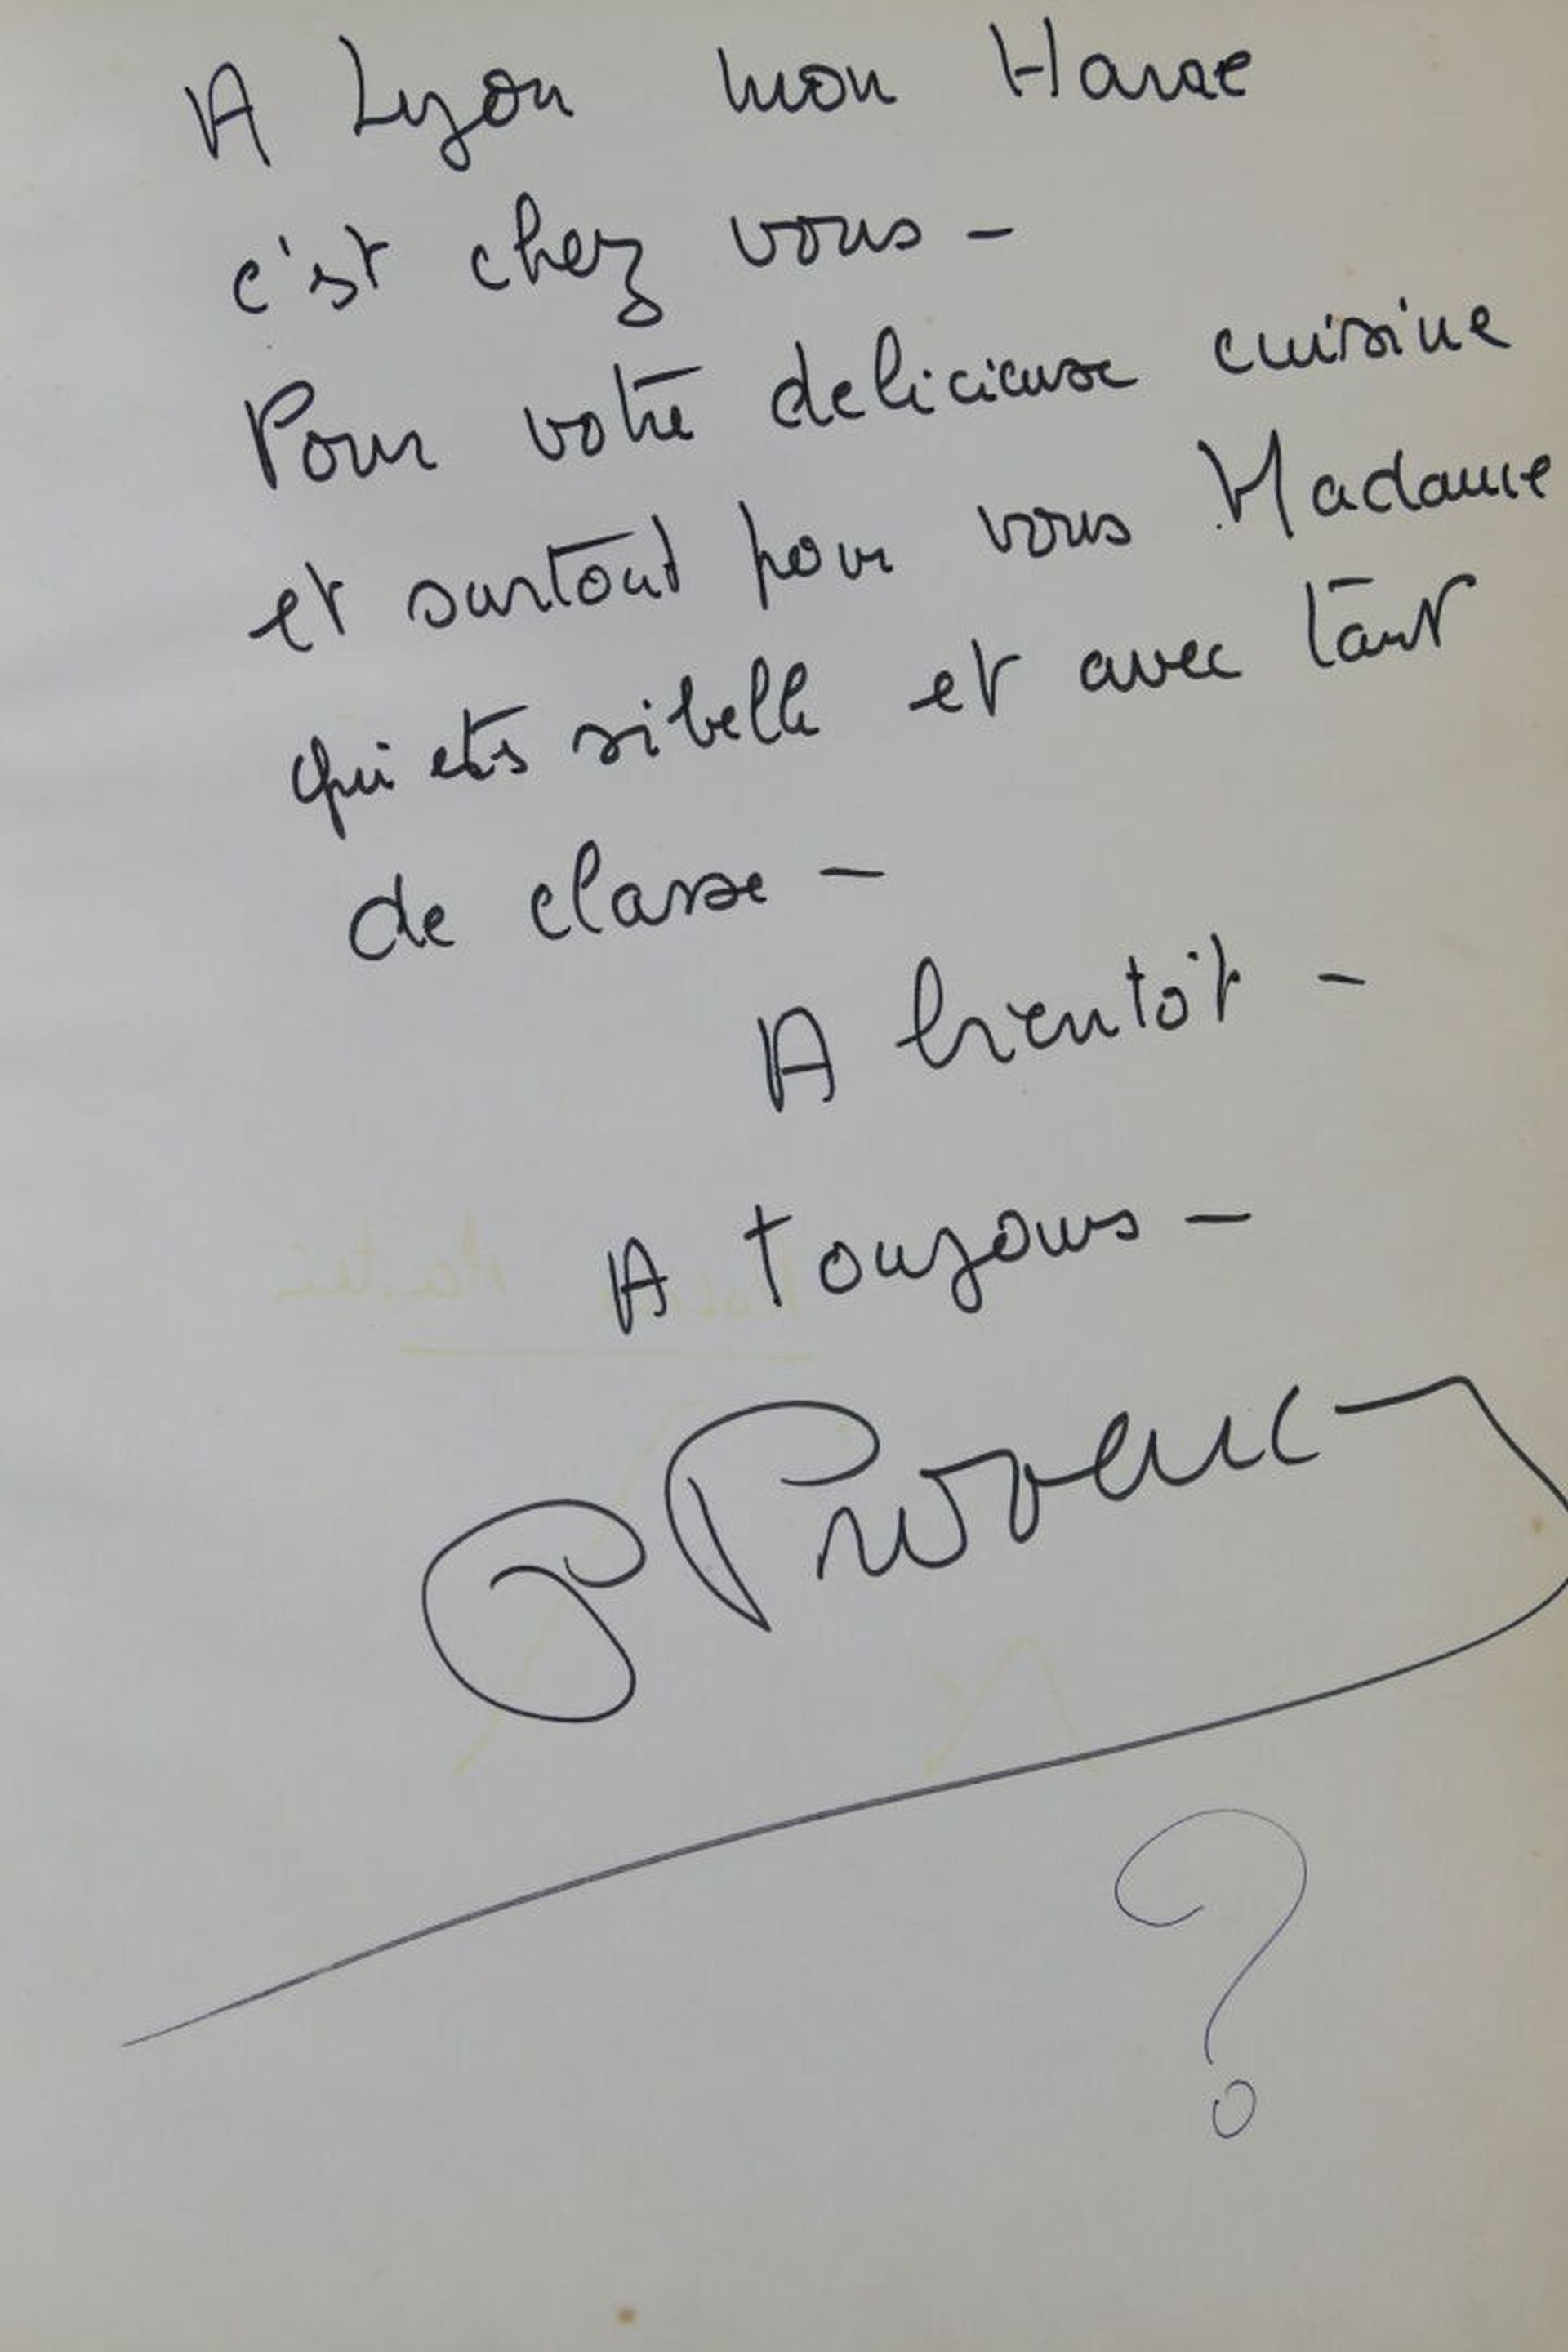 A Lyon mon Havre
c'est chez vous -
Pour votre delicieuse cuisine
et surtout pour vous Madame
qui etes si belle et avec tant
de classe -
A bientôt -
A toujours -
P Provence
?